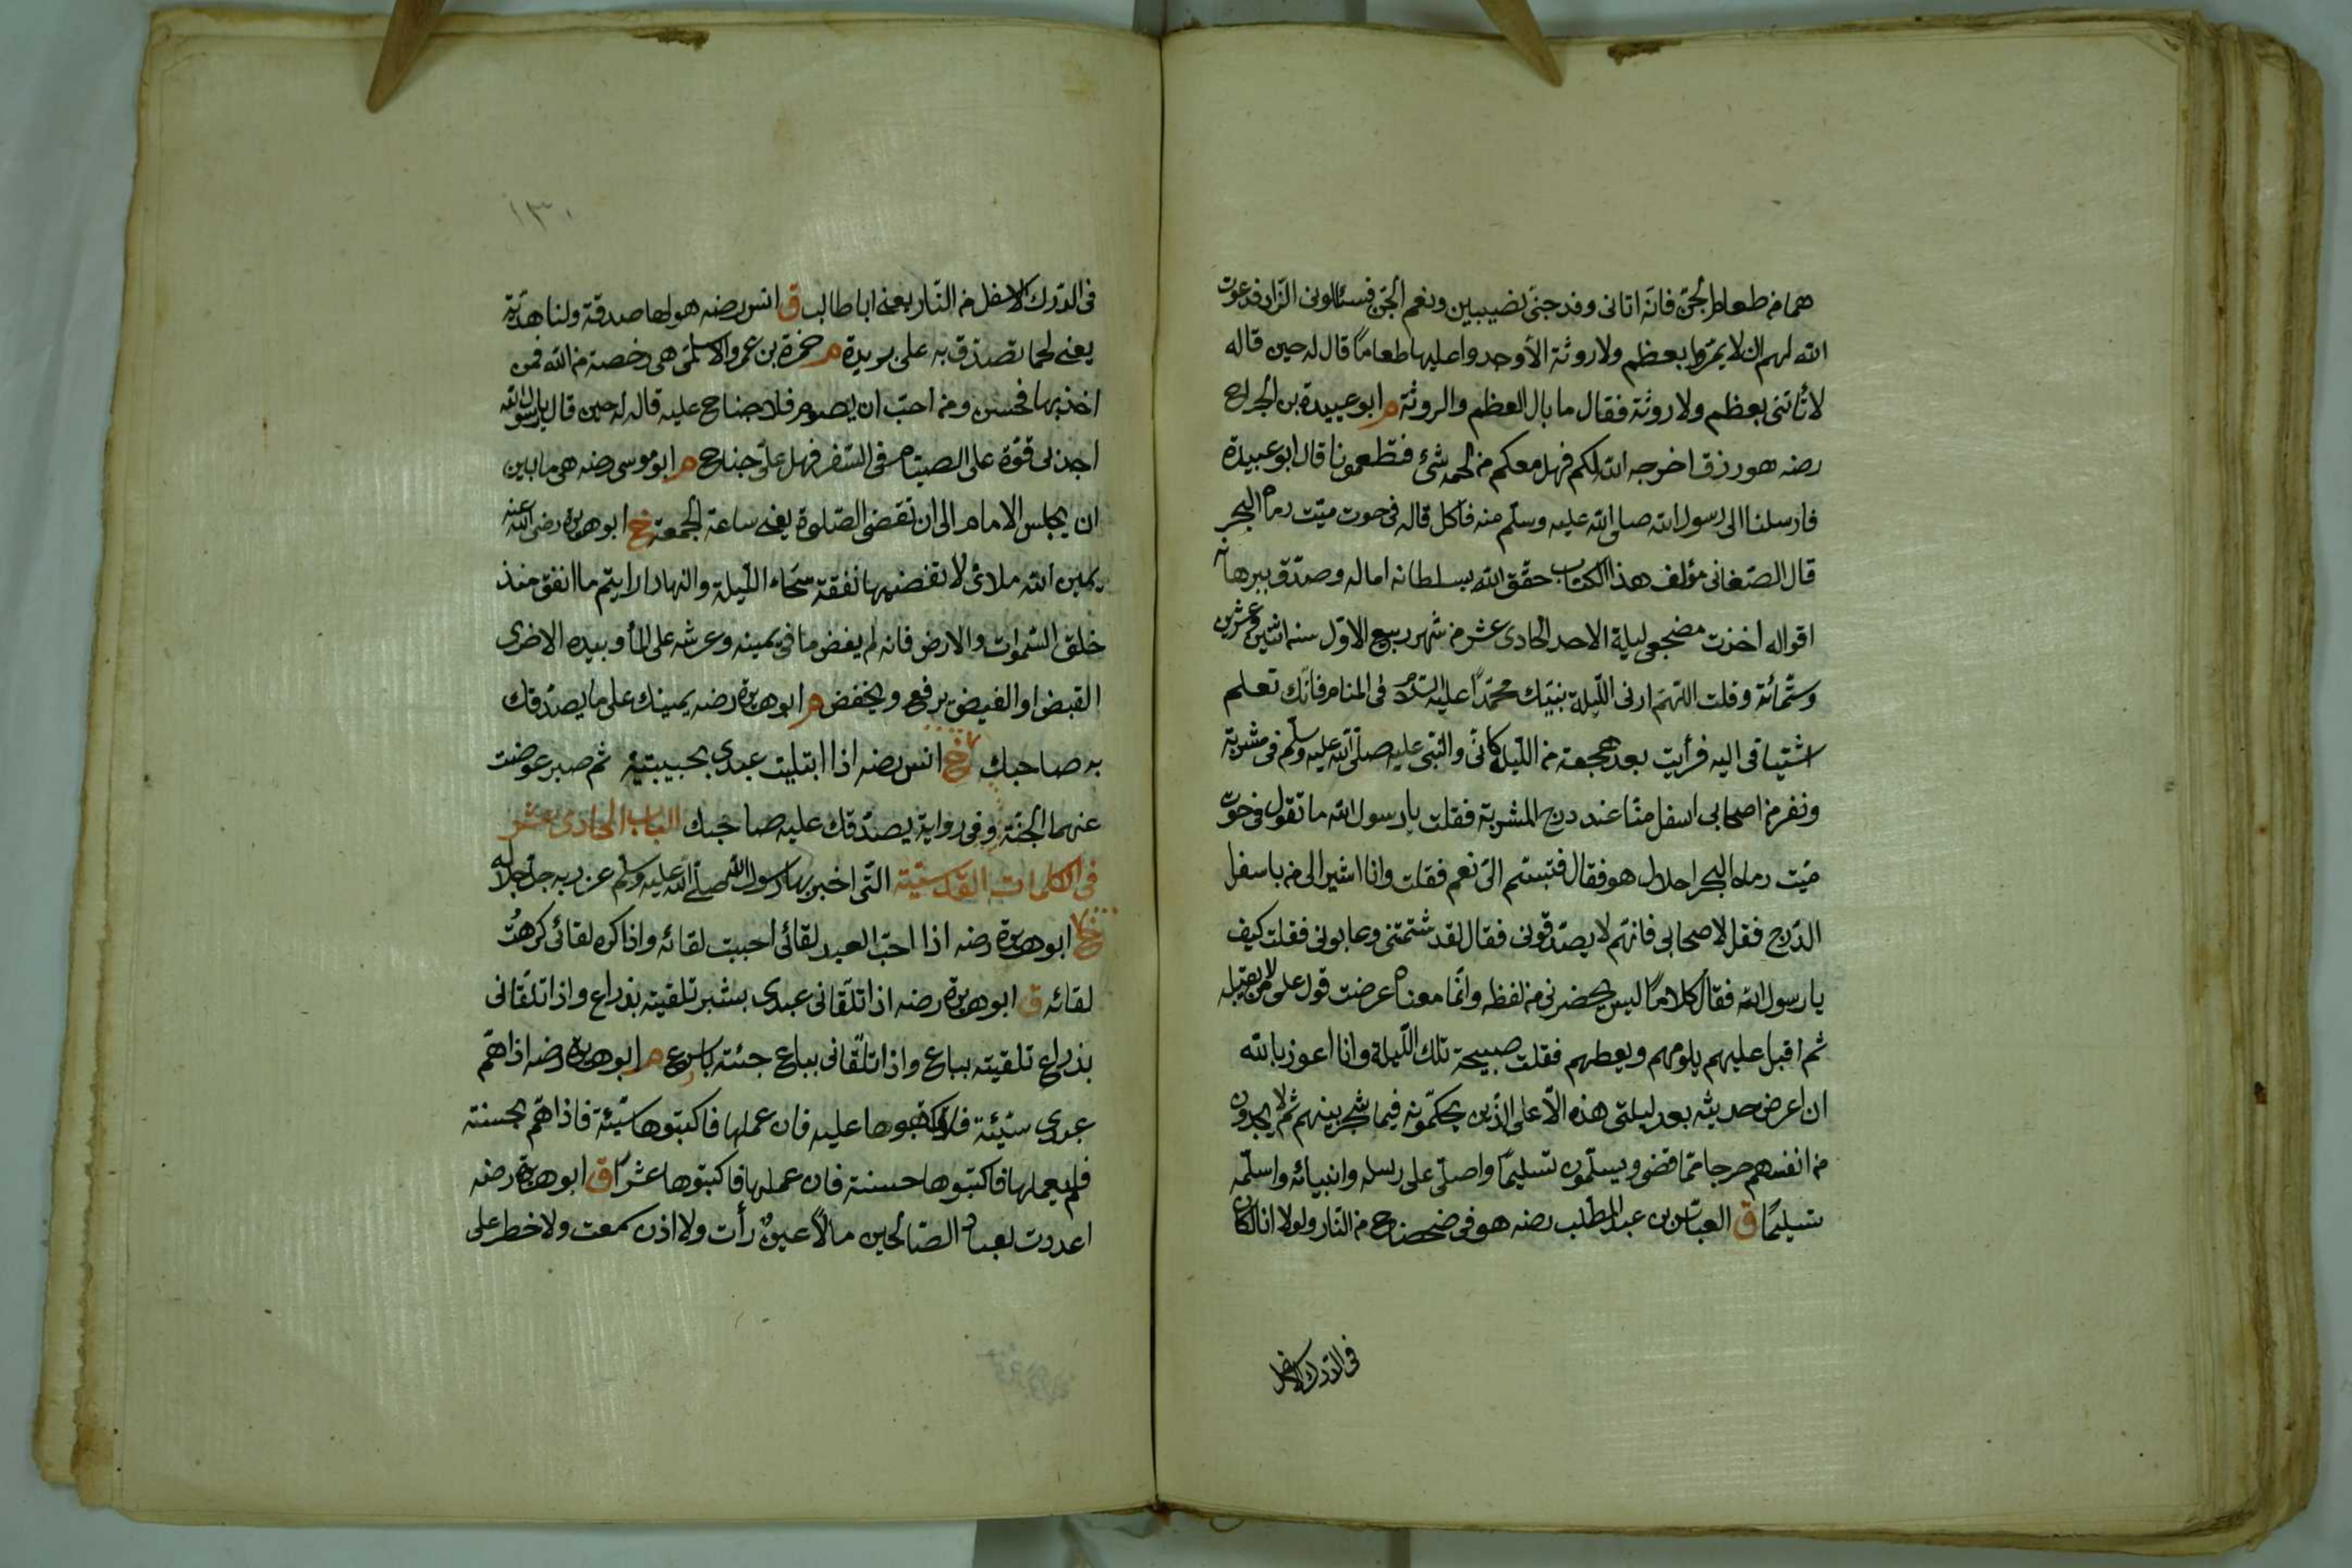 هما من طعام الجن فانه اتانى وفد جن نصيبين ونعم الجن فسئالونى الزاد فدعوت
الله لهم ان لا يمروا بعظم ولا روثة الا وجدوا عليها طعاما قال له حين قاله
لا تأتنى بعظم ولا روثة فقال ما بال العظم والروثة م ابو عبيدة بن الجراح
رضه هو رزق اخرجه الله لكم فهل معكم من لحمه شئ فتطعمونا قال ابو عبيدة
فارسلنا الى رسول الله صلى الله عليه وسلم منه فاكل قاله فى حوت ميت رماه البحر
قال الصغانى مؤلف هذا الكتاب حقق الله بسلطانه اماله وصدق ببرهانه
اقواله اخذت مضجعى ليلة الاحد الحادى عشر من شهر ربيع الاول سنه اثنين وعشرين
وستمائة وقلت اللهم ارنى الليلة نبيك محمدا عليه السلام فى المنام فانك تعلم
اشتياقى اليه فرأيت بعد هجعة من الليل كانى والنبى عليه صلى الله عليه وسلم فى مشربة
ونفر من اصحابى اسفل منا عند درج المشربة فقلت يا رسول الله ما تقول فى حوت
ميت رماه البحر احلال هو فقال فتبسم الى نعم فقلت وانا اشير الى من باسفل
الدرج فقل لاصحابى فانهم لا يصدقونى فقال لقد شتمتنى وعابونى فقلت كيف
يا رسول الله فقال كلاما ليس يحضرنى من لفظه وانما معناه عرضت قول على من لا يقبله
ثم اقبل عليهم يلومهم ويعظهم فقلت صبيحة تلك الليلة وانا اعوذ بالله
ان اعرض حديثه بعد ليلتى هذه الا على الذين يحكمونه فيما شجر بينهم ثم لا يجدون
من انفسهم حرجا مما قضى ويسلمون تسليما واصلى على رسله وانبيائه واسلم
تسليما ق العباس بن عبد المطلب رضه هو فى ضحضاح من النار ولولا انا لكان
فى الدرك الاسفل
١٣٠
فى الدرك الاسفل من النار يعنى ابا طالب ق انس رضه هو لها صدقة ولنا هدية
يعنى لحما تصدق به على بريدة م حمزة بن عمرو الاسلمى هى رخصة من الله فمن
اخذ بها فحسن ومن احب ان يصوم فلا جناح عليه قاله له حين قال يا رسول الله
اجد لى قوة على الصيام فى السفر فهل على جناح م ابو موسى رضه هى ما بين
ان يجلس الامام الى ان تقضى الصلوة يعنى ساعة الجمعة خ ابو هريرة رضى الله عنه
يمين الله ملائى لا تغضيها نفقة سحاء الليلة والنهار ارايتم ما انفق منذ
خلق السموات والارض فانه لم يغض ما فى يمينه وعرشه على الماء وبيده الاخرى
القبض او الفيض يرفع ويخفض م ابو هريرة رضه يمينك على ما يصدقك
به صاحبك خ انس رضه اذا ابتليت عبدى بحبيبتيه ثم صبر عوضت
عنهما الجنة وفى رواية يصدقك عليه صاحبك الباب الحادى عشر
فى الكلمات القدسية التى اخبر بها رسول الله صلى الله عليه وسلم عن ربه جل جلاله
خ ابو هريرة رضه اذا احب العبد لقائى احببت لقائه واذا كره لقائى كرهت
لقائه ق ابو هريرة رضه اذا تلقانى عبدى بشبر تلقيته بذراع واذا تلقانى
بذراع تلقيته بباع واذا تلقانى بباع جئته باسرع م ابو هريرة رضه اذا هم
عبدى سيئة فلا تكتبوها عليه فان عملها فاكتبوها سيئة فاذا هم بحسنة
فلم يعملها فاكتبوها حسنة فان عملها فاكتبوها عشرا ق ابو هريرة رضه
اعددت لعباد الصالحين مالا عين رأت ولا اذن سمعت ولا خطر على